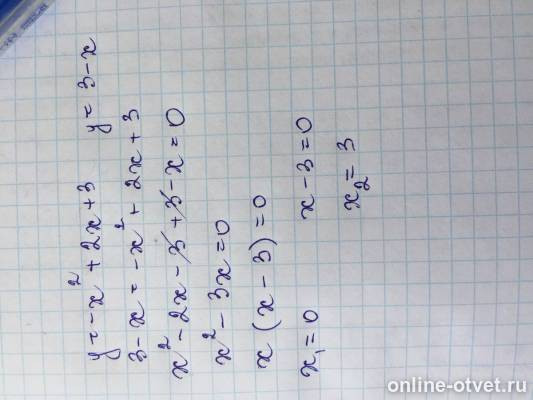 y = -x² + 2x + 3 y = 3 - x
3 - x = -x² + 2x + 3
x² - 2x - 3 + 3 - x = 0
x² - 3x = 0
x (x - 3) = 0
x₁ = 0 x - 3 = 0
x₂ = 3
online-otvet.ru